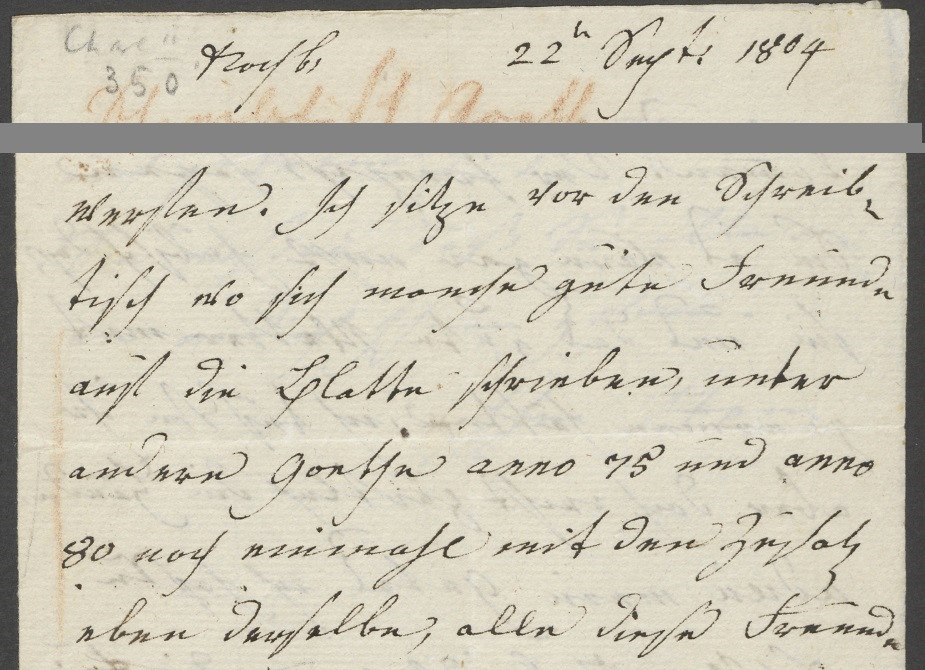 350
Kochb: 22n Sept: 1804
werfen. Ich sitze vor den Schreib-
tisch wo sich manche gute Freunde
auf die Platte schrieben, unter
andern Goethe anno 75 und anno
80 noch einmahl mit den Zusatz
eben derselbe, alle diese Freunde